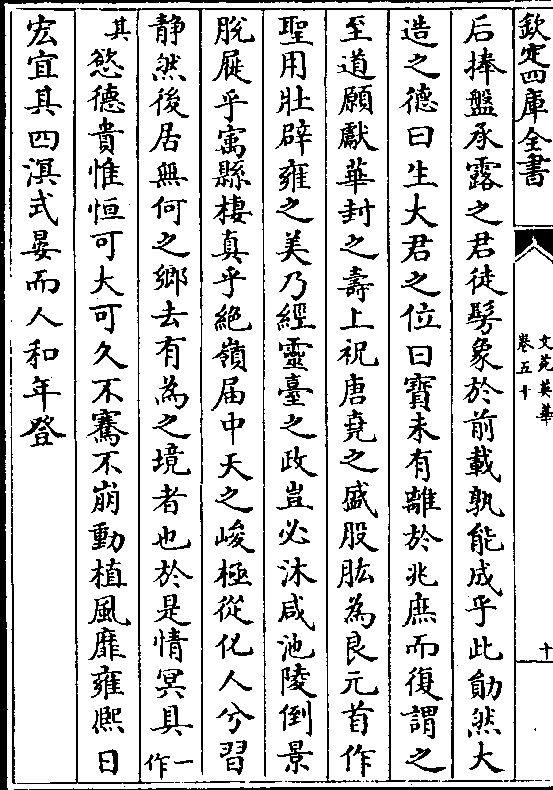 欽定四庫全書
文苑英華
卷五十
十
后捧盤承露之君徒髣象於前載孰能成乎此勛然大
造之德曰生大君之位曰寳未有離於兆庶而復謂之
至道願獻華封之壽上祝唐堯之盛股肱為良元首作
聖用壯辟雍之美乃經靈臺之政豈必沐咸池陵倒景
脫屣乎寓縣棲真乎絶嶺届中天之峻極從化人兮習
静然後居無何之鄉去有為之境者也於是情冥具一作
其慾德貴惟恒可大可久不騫不崩動植風靡雍熙日
宏宜其四溟式晏而人和年登